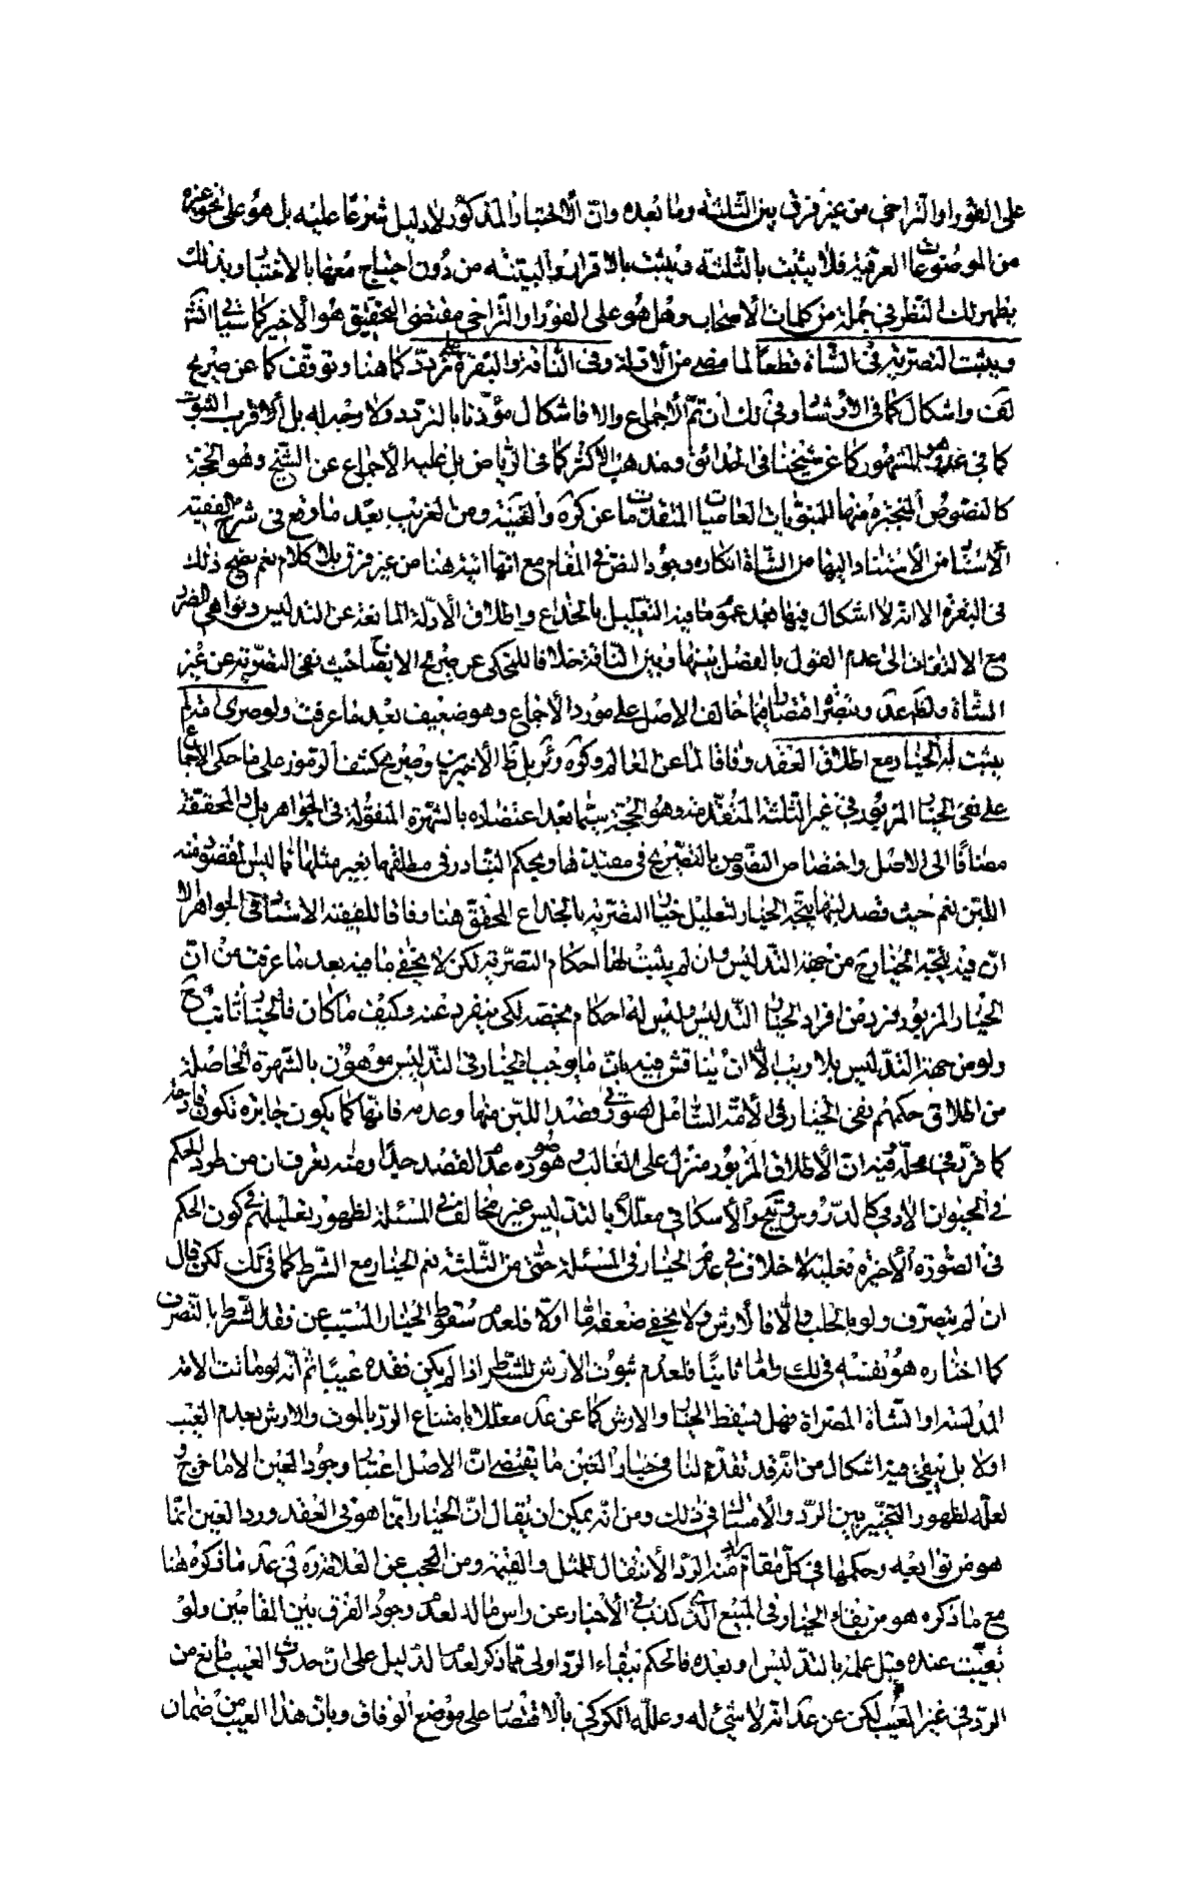 على الفور او التراخى من غير فرق بين الثلثة وما بعده وان الاختبار المذكور لا دليل شرعا عليه بل هو على نحو غيره
من الموضوعات العرفية فلا يثبت بالثلثة ويثبت بالاقرار والبينة من دون احتياج معها بالاختبار وبذلك
يظهر لك النظر فى جملة من كلمات الاصحاب وهل هو على الفور او التراخى مقتضى التحقيق هو الاخير كما سيأتى انشاء
ويثبت التصرية فى الشاة قطعا لما مضى من الادلة وفى الناقة والبقرة على تردد كما هنا وتوقف كما عن صريح
لف واشكال كما فى الارشاد وفى لك ان تم الاجماع والا فاشكال مؤذنا بالتردد ولا وجه له بل الاقرب الثبوت
كما فى عد وهو المشهور كما عن شيخنا فى الحدائق ومذهب الاكثر كما فى الرياض بل عليه الاجماع عن الشيخ وهو الحجة
كالنصوص المنجبرة منها النبويات العاميات المتقدمات ما عن كره والغنية ومن الغريب بعد ما وقع فى شرح الفقيه
الاستاد من الاستناد اليها من الشاة انكاره وجود النص فى المقام مع انها اتية هنا من غير فرق بلا كلام نعم يصح ذلك
فى البقرة الا انه لا اشكال فيها بعد عموم ما فيه التعليل بالخداع واطلاق الادلة المانعة عن التدليس ونواهى الضرر
مع الالتفات الى عدم القول بالفصل بينها وبين الناقة خلافا للمحكى عن صريح الايضاح حيث نفى التصرية عن غير
الشاة ولف وعد ويشر اقتصارا فيما خالف الاصل على مورد الاجماع وهو ضعيف بعد ما عرفت ولو صرى امة لم
يثبت له الخيار مع اطلاق العقد وفاقا لما عن المعالم وكره وئر بل ظ الاخيرين وصريح كشف الرموز على ما حكى الاجماع
على نفى الخيار المزبور فى غير الثلثة المتقدمة وهو الحجة سيما بعد اعتضاده بالشهرة المنقولة فى الجواهر بل والمحققة
مضافا الى الاصل واختصاص النصوص بالتصريح فى مقيدتها وبحكم التبادر فى مطلقها بغير مثلها مما ليس المقصود منه
اللبن نعم حيث قصد لبنها يتجه الخيار لتعليل خيار التصرية بالخداع المحقق هنا وفاقا للفقيه الاستاد فى الجواهر الا
انه قيد يتجه الخيار ح من جهة التدليس وان لم يثبت لها احكام التصرية لكن لا يخفى ما فيه بعد ما عرفت من ان
الخيار المزبور فرد من افراد الخيار التدليس وليس له احكام مختصة لكى ينفرد عنه وكيف ما كان فالخيار ثابت ح
ولو من جهة التدليس بلا ريب الا ان يناقش فيه بان ما يوجب الخيار فى التدليس موهون بالشهرة الحاصلة
من اطلاق حكمهم بنفى الخيار فى الامة الشامل لصورتى قصد اللبن منها وعدمه فانها كما يكون جابرة تكون قادحة
كما قرر فى محله وفيه ان الاطلاق المزبور منزل على الغالب وهو صورة عدم القصد جدا ومنه يعرف ان من طرد الحكم
فى الحيوان الادمى كالدروس وتبعه الاسكافى معللا بالتدليس غير مخالف فى المسئلة لظهور تعليلهم فى كون الحكم
فى الصورة الاخيرة فعليه لا خلاف فى عدم الخيار فى المسئلة حتى من الثلثة نعم الخيار مع الشرط كما فى لك لكن قال
ان لم يتصرف ولو بالحلب والا فالارش ولا يخفى ضعفه اما اولا فلعدم سقوط الخيار المسبب عن فقد الشرط بالتصرف
كما اختاره هو بنفسه فى لك واما ثانيا فلعدم ثبوت الارش للشرط اذا لم يكن فقده عيبا ثم انه لو ماتت الامة
المدلسة او الشاة المصراة فهل يسقط الخيار والارش كما عن عد معللا بامتناع الرد بالموت والارش بعدم العيب
اولا بل يبقى فيه اشكال من انه قد تقدم لنا فى خيار الغبن ما يقتضى ان الاصل اعتبار وجود العين الا ما خرج
لعله لظهور التخيير بين الرد والامساك فى ذلك ومن انه يمكن ان يقال ان الخيار انما هو فى العقد ورد العين انما
هو من توابعه وحكمها فى كل مقام يراد منه الرد الانتقال للمثل والقيمة ومن العجب عن العلامة ره فى عد ما ذكره هنا
مع ما ذكره هو من بقاء الخيار فى المبيع الذى كذب فى الاخبار عن راس ماله لعدم وجود الفرق بين المقامين ولو
تعيبت عنده قبل علمه بالتدليس او بعده فالحكم ببقاء الرد اولى مما ذكر لعدم الدليل على ان حدوث العيب مانع من
الرد فى غير المعيب لكن عن عد انه لا شيء له وعلله الكركى بالاقتصار على موضع الوفاق وبان هذا العيب من ضمان